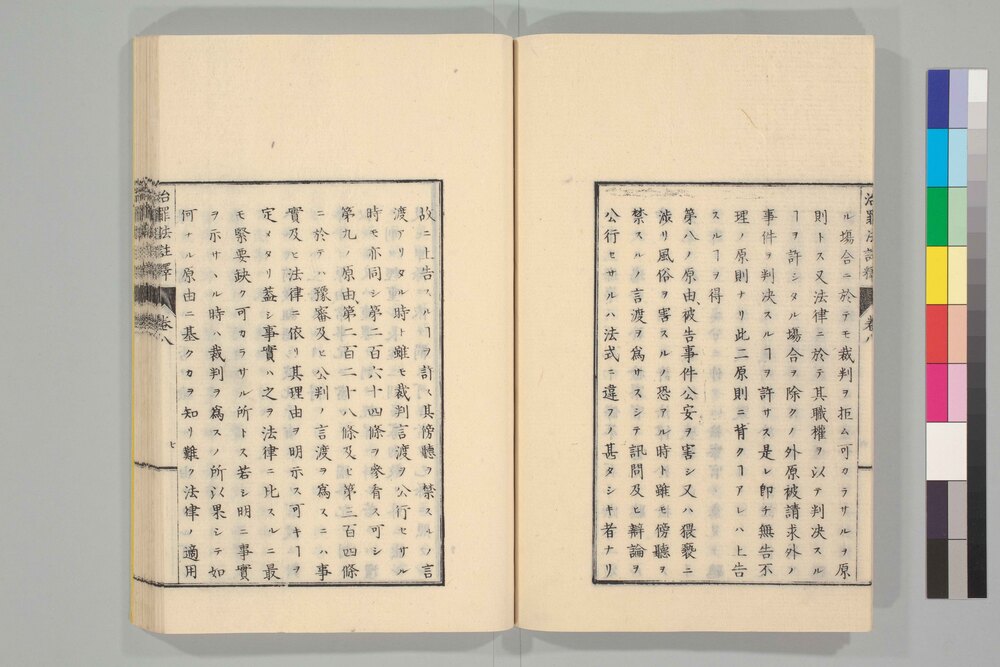 治罪法註釋 卷八
ル塲合ニ於テモ裁判ヲ拒ム可カラサルヲ原
則トス又法律ニ於テ其職權ヲ以テ判决スル
ヿヲ許シタル塲合ヲ除クノ外原被請求外ノ
事件ヲ判决スルヿヲ許サス是レ卽チ無告不
理ノ原則ナリ此二原則ニ背クヿアレハ上告
スルヿヲ得
第八ノ原由、被告事件公安ヲ害シ又ハ猥褻ニ
渉リ風俗ヲ害スルノ恐アル時ト雖モ傍聽ヲ
禁スルノ言渡ヲ爲サスシテ訊問及ヒ辯論ヲ
公行セサルハ法式ニ違フノ甚タシキ者ナリ
故ニ上告スルヿヲ許ス其傍聽ヲ禁スルノ言
渡アリタル時ト雖モ裁判言渡ヲ公行セサル
時モ亦同シ第二百六十四條ヲ參看ス可シ
第九ノ原由、第二百二十八條及ヒ第三百四條
ニ於テハ豫審及ヒ公判ノ言渡ヲ爲スニハ事
實及ヒ法律ニ依リ其理由ヲ明示ス可キヿヲ
定メタリ葢シ事實ハ之ヲ法律ニ比スルニ最
モ緊要缺ク可カラサル所トス若シ明ニ事實
ヲ示サヽル時ハ裁判ヲ爲スノ所以果シテ如
何ナル原由ニ基クカヲ知リ難ク法律ノ適用
治罪法註釋 卷八
七